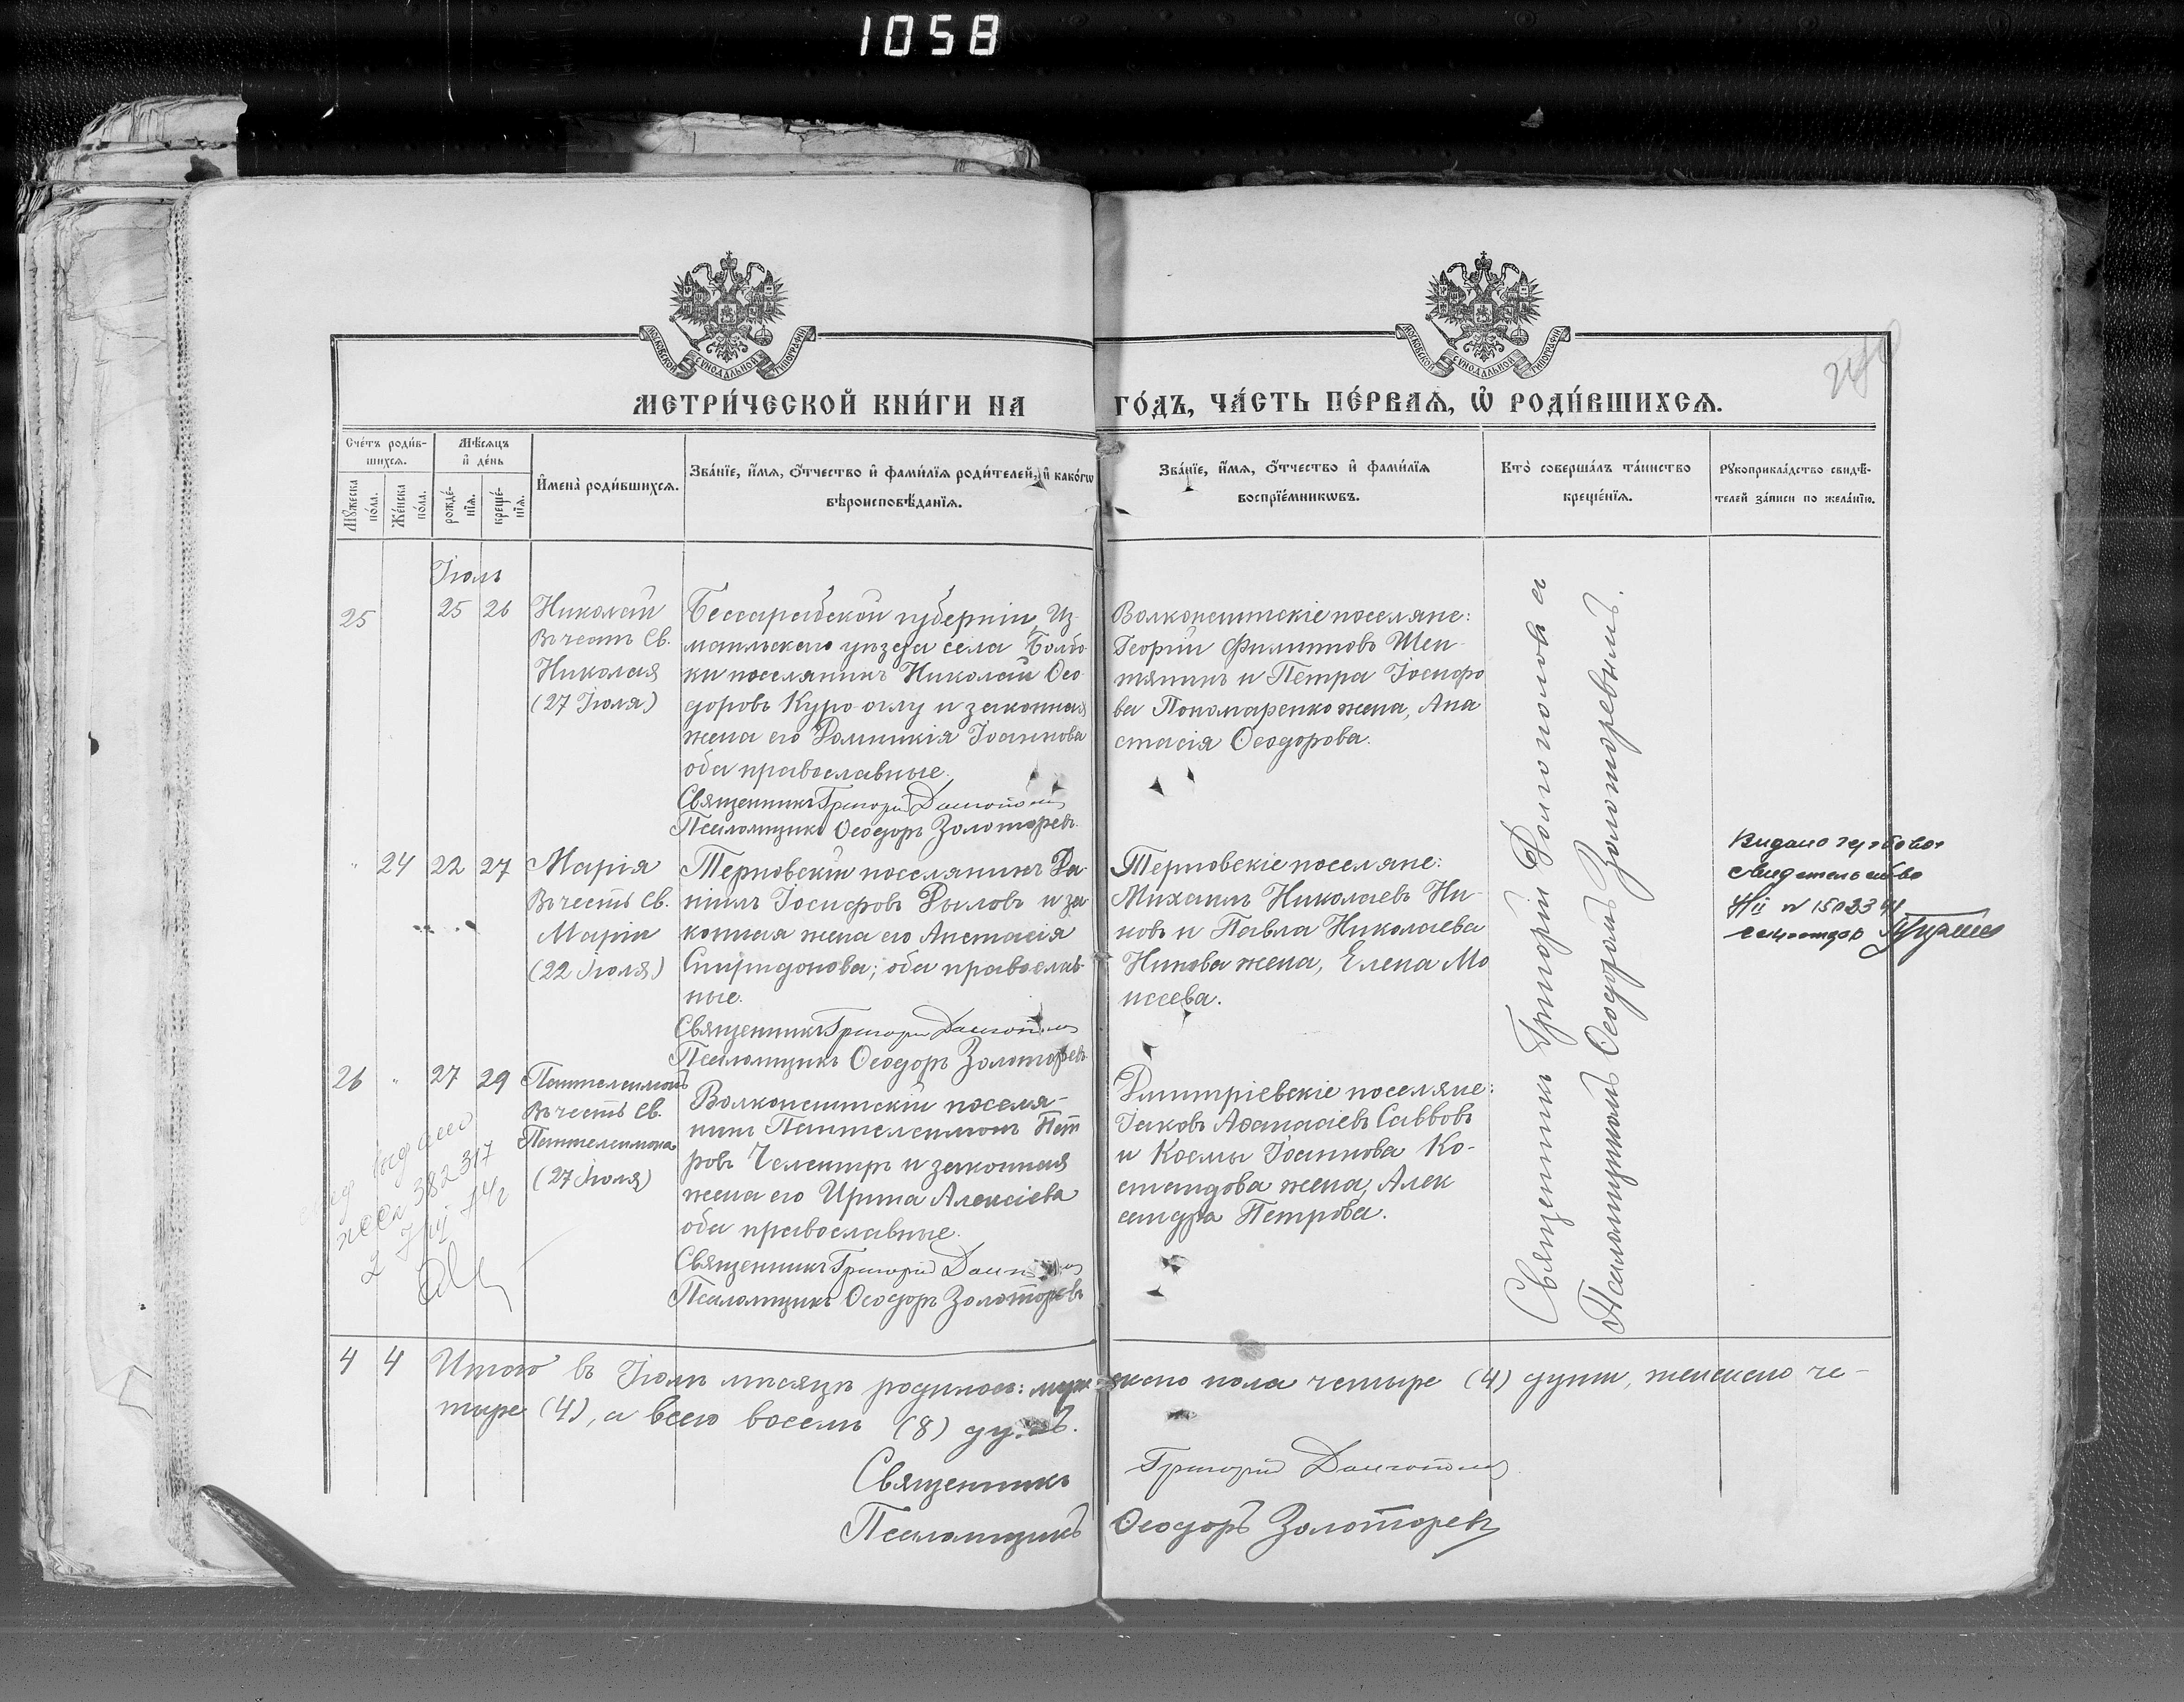 1058
МОСКОВСКОЙ СѴНОДАЛЬНОЙ ТИПОГРАФІИ
МОСКОВСКОЙ СѴНОДАЛЬНОЙ ТИПОГРАФІИ
МЕТРИ́ЧЕСКОЙ КНИ́ГИ НА
ГО́ДЪ, ЧА́СТЬ ПЕ́РВАѦ, Ѡ҆ РОДИ́ВШИХСѦ.
Сче́тъ роди́в-
шихсѧ.
Мѣ́сѧцъ
и҆ де́нь
Мꙋ́жеска
по́ла.
Же́нска
по́ла.
рожде́-
нїѧ.
креще́-
нїѧ.
И҆мена̀ роди́вшихсѧ.
Зва́нїе, и҆́мѧ, ѻ҆́тчество и҆ фами́лїѧ роди́телей, и҆ како́гѡ
вѣроисповѣ́данїѧ.
Зва́нїе, и҆́мѧ, ѻ҆́тчество и҆ фами́лїѧ
воспрїе́мникѡвъ.
Кто̀ соверша́лъ та́инство
креще́нїѧ.
Рꙋкоприкла́дство свидѣ́-
телей за́писи по жела́нїю.
Іюль
25
25 26
Николай
Въ честь Св.
Николая
(27 Іюля)
Бессарабской губерніи, Из-
маильскаго уѣзда села Болбо
ки поселянинъ Николай Ѳео
доровъ Куро-оглу и законная
жена его Домникія Іоаннова
оба православные.
Священникъ Григорій
Псаломщикъ Ѳеодоръ Золоторевъ
Волконештскіе поселяне:
Георгій Филипповъ Шеп
тянинъ и Петра Іосифо
ва Пономаренко жена, Ана
стасія Ѳеодорова.
„ 24 22 27
Марія
Въ честь Св.
Маріи
(22 Іюля)
Терновскій поселянинъ Да
ніилъ Іосифовъ Дыловъ и за
конная жена его Анастасія
Спиридонова; оба православ-
ные.
Священникъ Григорій
Псаломщикъ Ѳеодоръ Золоторевъ
Терновскіе поселяне:
Михаилъ Николаевъ Ни-
новъ и Павла Николаева
Нинова жена, Елена Мо
исеева.
Видано
свидетельство
26 „ 27 29
Пантелеимонъ
Въ честь Св.
Пантелеимона
(27 Іюля)
Волконештскій поселя-
нинъ Пантелеимонъ Пет
ровъ Челентръ и законная
жена его Ирина Алексіева
оба православные.
Священникъ Григорій
Псаломщикъ Ѳеодоръ Золоторевъ
Дмитріевскіе поселяне:
Іаковъ Аѳанасіевъ Саввовъ
и Космы Іоаннова Ко-
стандова жена, Алек
сандра Петрова.
Священникъ Григорій
Псаломщикомъ Ѳеодоромъ Золоторевымъ.
4 4 Итого въ Іюлѣ мѣсяцѣ родилось: мужскаго пола четыре (4) души, женскаго че-
тыре (4), а всего восемь (8) душъ.
Священникъ Григорій
Псаломщикъ Ѳеодоръ Золоторевъ